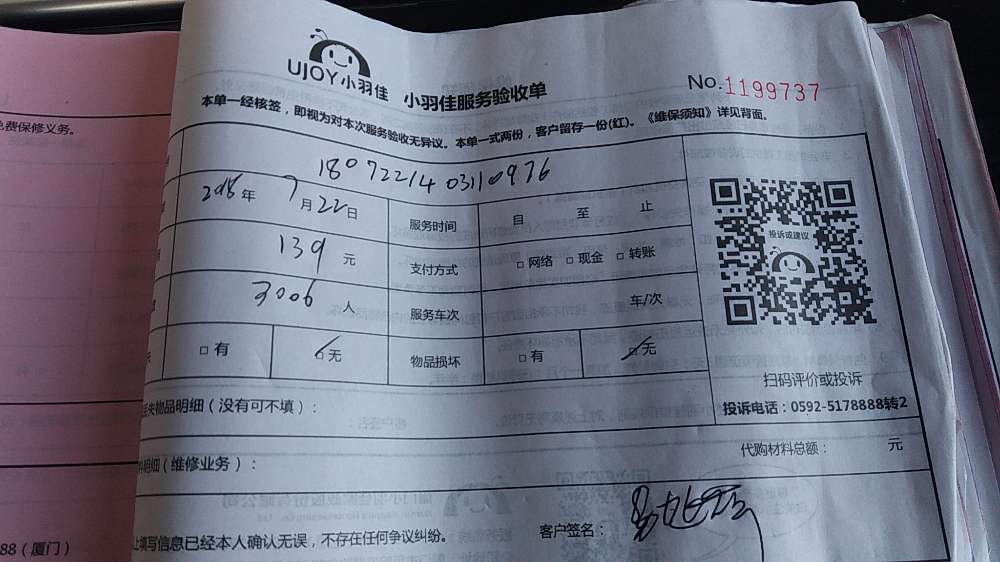 UJOY小羽佳 小羽佳服务验收单
No.1199737
本单一经核签，即视为对本次服务验收无异议。本单一式两份，客户留存一份(红)。《维保须知》详见背面。
免费保修义务。
18072214 03110976
2018年 7月22日 服务时间 自 至 止
139 元 支付方式 □网络 □现金 □转账
3006 人 服务车次 车/次
□有 □无 物品损坏 □有 □无
投诉或建议
扫码评价或投诉
投诉电话：0592-5178888转2
丢失物品明细（没有可不填）：
代购材料总额： 元
件明细（维修业务）：
上填写信息已经本人确认无误，不存在任何争议纠纷。 客户签名：
88（厦门）